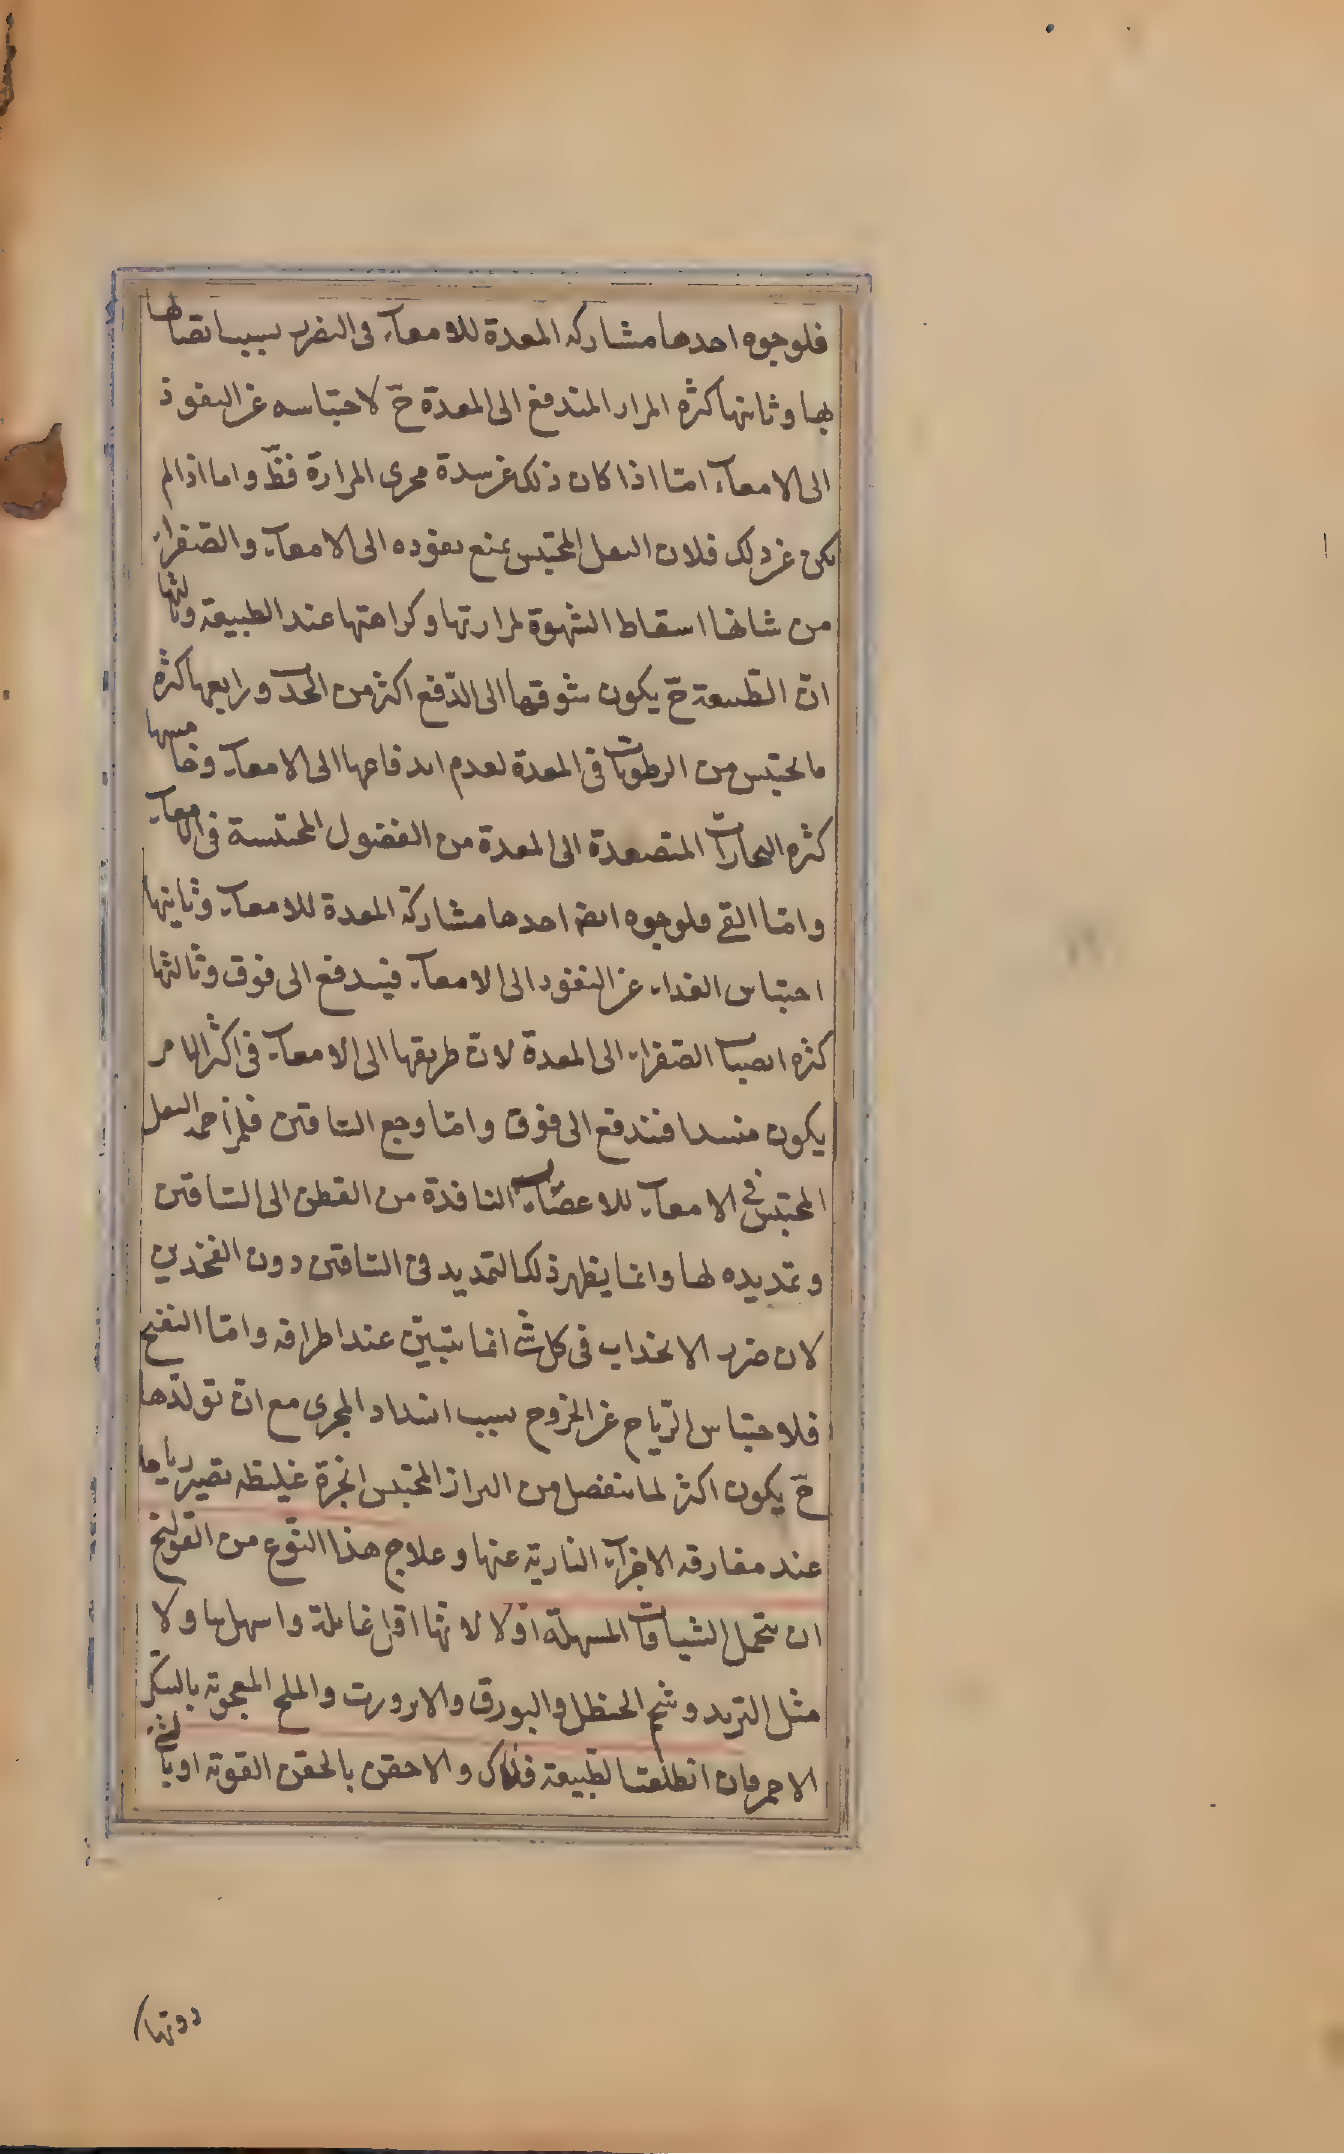 فلوجوه احدها مشاركة المعدة للامعآء فى التضرر بسبب اتصالها
بها وثانيها كثرة المرار المندفع الى المعدة حّ لاحتباسه عن النفوذ
الى الامعآء امّا اذا كان ذلك عن سدة مجرى المرارة فظّ واما اذا لم
يكن عن ذلك فلان الثفل المحتبس يمنع نفوذه الى الامعآء والصّفراء
من شانها اسقاط الشهوة لمرارتها وكراهتها عند الطبيعة وثالثها
انّ الطّبيعة حّ يكون شوقها الى الدّفع اكثر من الجذب ورابعها كثرة
ما يحتبس من الرطوبات فى المعدة لعدم اندفاعها الى الامعآء وخامسها
كثرة البخارات المتصعدة الى المعدة من الفضول المحتبسة فى الامعآء
وامّا القئ فلوجوه ايضا احدها مشاركة المعدة للامعآء وثانيها
احتباس الغذاء عن النفوذ الى الامعآء فيندفع الى فوق وثالثها
كثرة انصباب الصّفراء الى المعدة لانّ طريقها الى الامعآء فى اكثر الامر
يكون منسدا فتندفع الى فوق وامّا وجع السّاقين فلمزاحمة الثفل
المحتبس فى الامعآء للاعصاب النافذة من القطن الى السّاقين
وتمديده لها وانما يظهر ذلك التمديد فى السّاقين دون الفخذين
لان ضرر الانجذاب فى كل شئ انما يتبيّن عند اطرافه وامّا النفخ
فلاحتباس الرّياح عن الخروج بسبب انسداد المجرى مع انّ تولّدها
حّ يكون اكثر لما ينفصل من البراز المحتبس ابخرة غليظة تصير رياحا
عند مفارقة الاجزآء النارية عنها وعلاج هذا النّوع من القولنج
ان يتحمل الشيافات المسهلة اوّلا لانّها اقل غائلة واسهل
مثل التربد وشحم الحنظل والبورق والانزروت والملح المعجونة بالسّكّر
الاحمر فان انطلقت الطّبيعة فذاك والا حقن بالحقن القوية
دونها